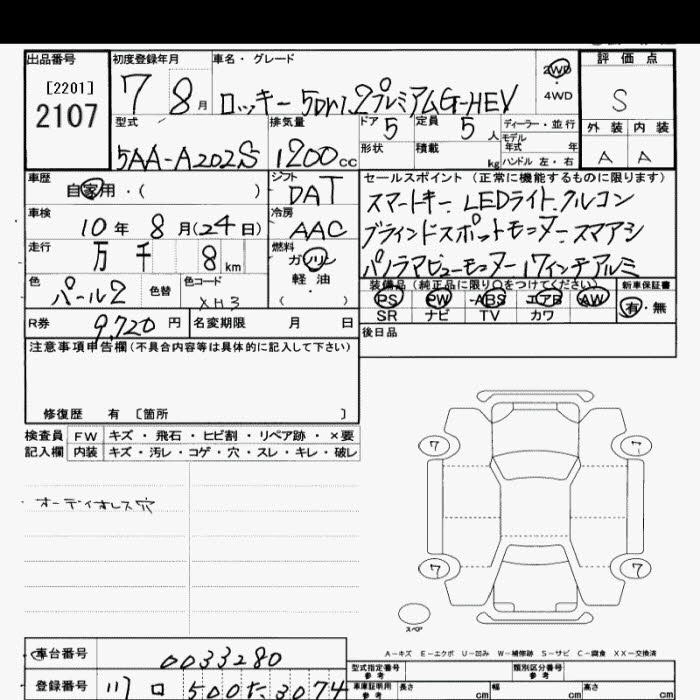 出品番号
[2201]
2107
初度登録年月
7 8月
車名・グレード
ロッキー 5Dr1.2プレミアムG-HEV
2WD
4WD
評価点
S
外装 内装
A A
型式
5AA-A202S
排気量
1200cc
ドア
5
定員
5人
ディーラー・並行
モデル年式 年
形状
積載 kg
ハンドル 左・右
車歴
自家用・( )
シフト
DAT
車検
10年 8月(24日)
冷房
AAC
走行
万 千 8km
燃料
ガソリン
軽油
( )
色
パール2
色替
色コード
XH3
R券
9,720円
名変期限 月 日
セールスポイント(正常に機能するものに限ります)
スマートキー LEDライト クルコン
ブラインドスポットモニター スマアシ
パノラマビューモニター 17インチアルミ
装備品(純正品に限り○をつけてください)
PS PW ABS エアB AW
SR ナビ TV カワ
新車保証書
有・無
後日品
注意事項申告欄(不具合内容等は具体的に記入して下さい)
修復歴 有 〔箇所 〕
検査員記入欄
FW キズ・飛石・ヒビ割・リペア跡・×要
内装 キズ・汚レ・コゲ・穴・スレ・キレ・破レ
オーディオレス穴
7 7
7 7
スペア
A−キズ E−エクボ U−凹み W−補修跡 S−サビ C−腐食 XX−交換済
車台番号
0033280
登録番号
川口 500 3074
型式指定番号 参考
類別区分番号 参考
車庫証明用 参考
長さ cm
幅 cm
高さ cm